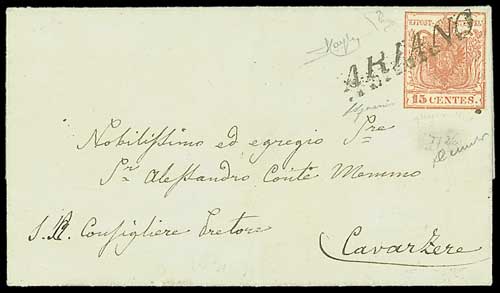 KKPOST-STEMPEL
15 CENTES.
ARIANO
Nobilissimo ed egregio Sre
Sr Alessandro Conte Memmo
I. R. Consigliere Pretore
Cavarzere